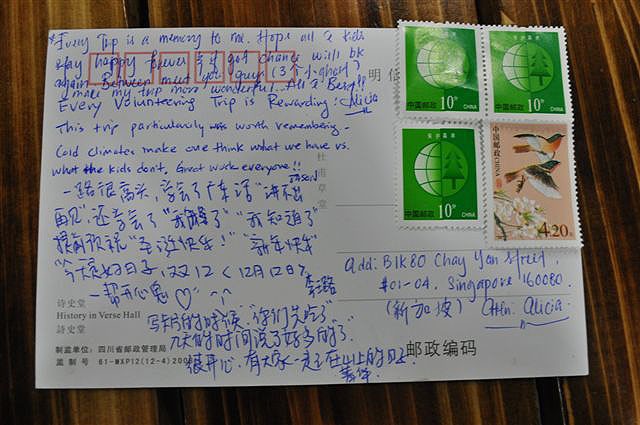 *Every Trip is a memory to me. Hope all d kids
stay happy forever & if got chance will bk
again. Between meet you guys (3个 ghost)
make my trip more wonderful.
Every Volunteering Trip is Rewarding :Alicia
This trip particularly was worth remembering.
Cold climates make one think what we have vs.
what the kids don't. Great work everyone!!
Jason
一路很高兴，学会了广东话“讲不出
再见”，还学会了“我醉了”“我知道了”
提前祝说“圣诞快乐！”“新年快乐”
今天是好日子，双12<12月12日>
一帮开心鬼 ♡ ^_^
写卡片的时候，“你们先吃了”
九天的时间说了好多的了
很开心，有大家一起在山上的日子
Add: Blk 80 Chay Yan Street,
#01-04, Singapore 160080.
(新加坡) Attn: Alicia.
明信
杜甫草堂
诗史堂
History in Verse Hall
詩史堂
制监单位：四川省邮政管理局
监制号：61-WXP12(12-4)200
邮政编码
保护森林
中国邮政 CHINA
10分
保护森林
中国邮政 CHINA
10分
保护森林
中国邮政 CHINA
10分
中国邮政 CHINA
4.20元